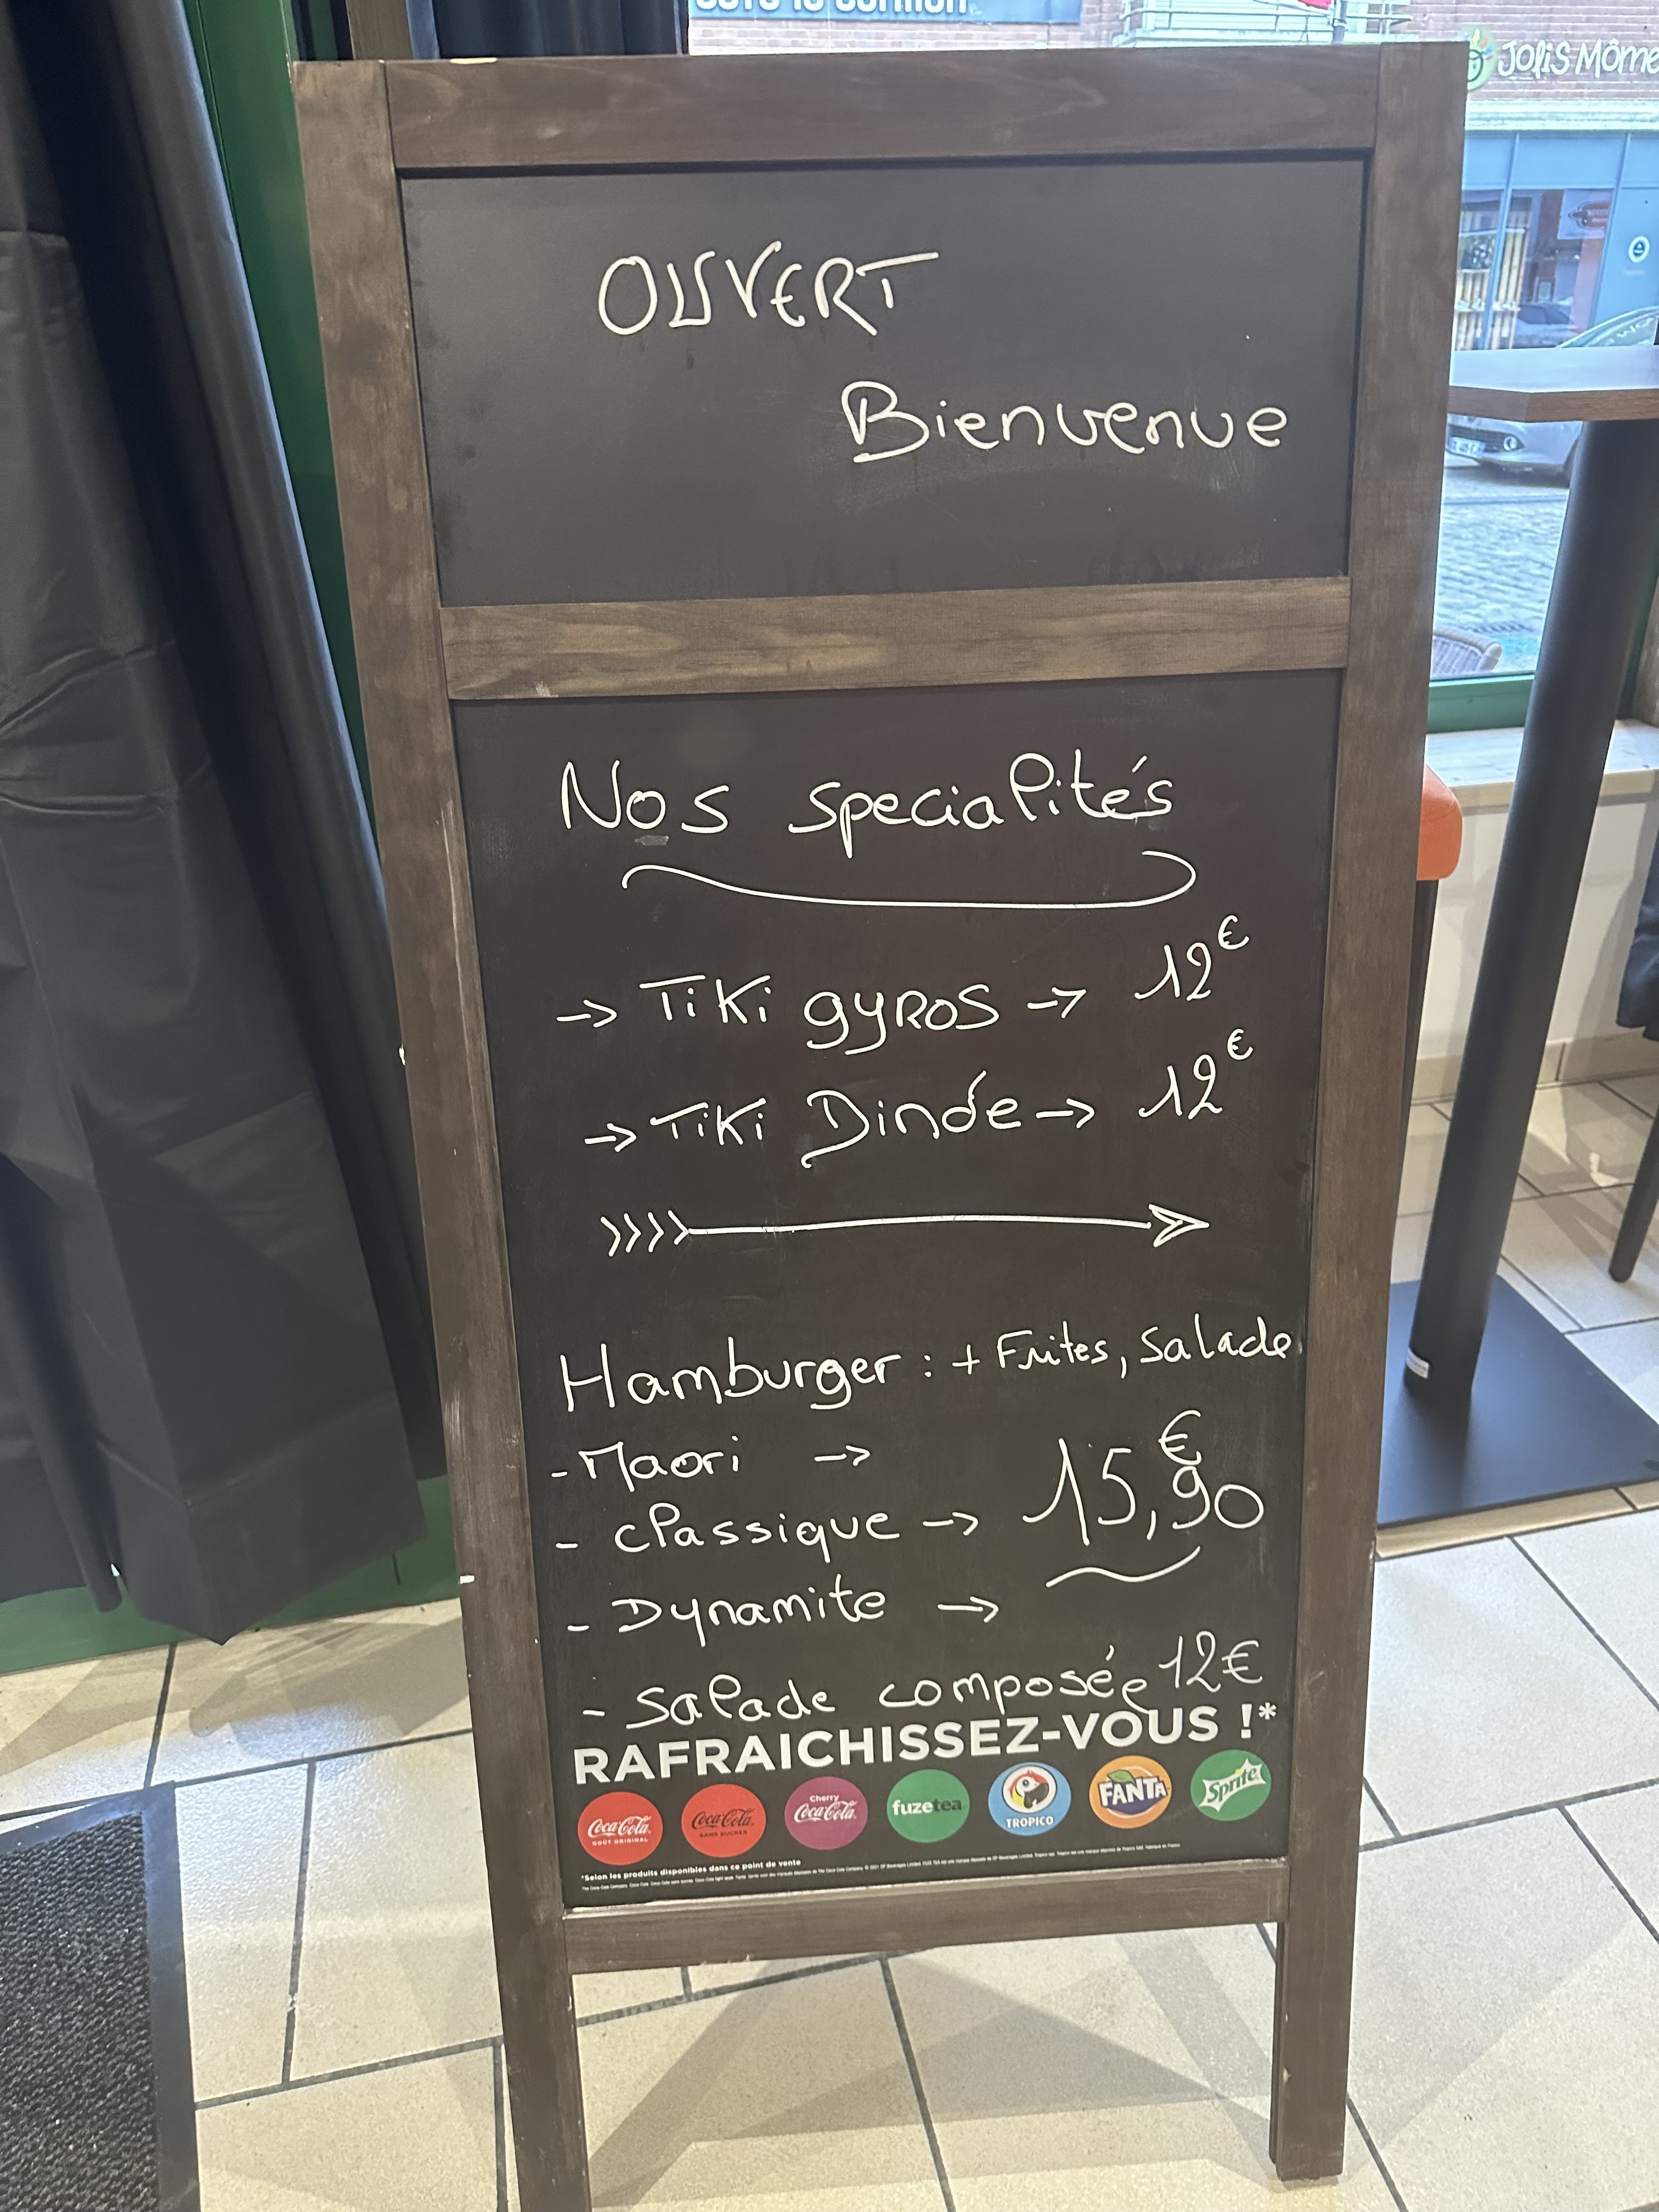 JOliS Môme
OUVERT
Bienvenue
Nos specialités
→ TiKi gyROS → 12€
→ TiKi Dinde → 12€
Hamburger : + Frites, Salade
- Maori →
15,90€
- Classique →
- Dynamite →
- Salade composée 12€
RAFRAICHISSEZ-VOUS !*
Coca-Cola GOÛT ORIGINAL
Coca-Cola SANS SUCRES
Cherry Coca-Cola
fuzetea
TROPICO
FANTA
Sprite
*Selon les produits disponibles dans ce point de vente